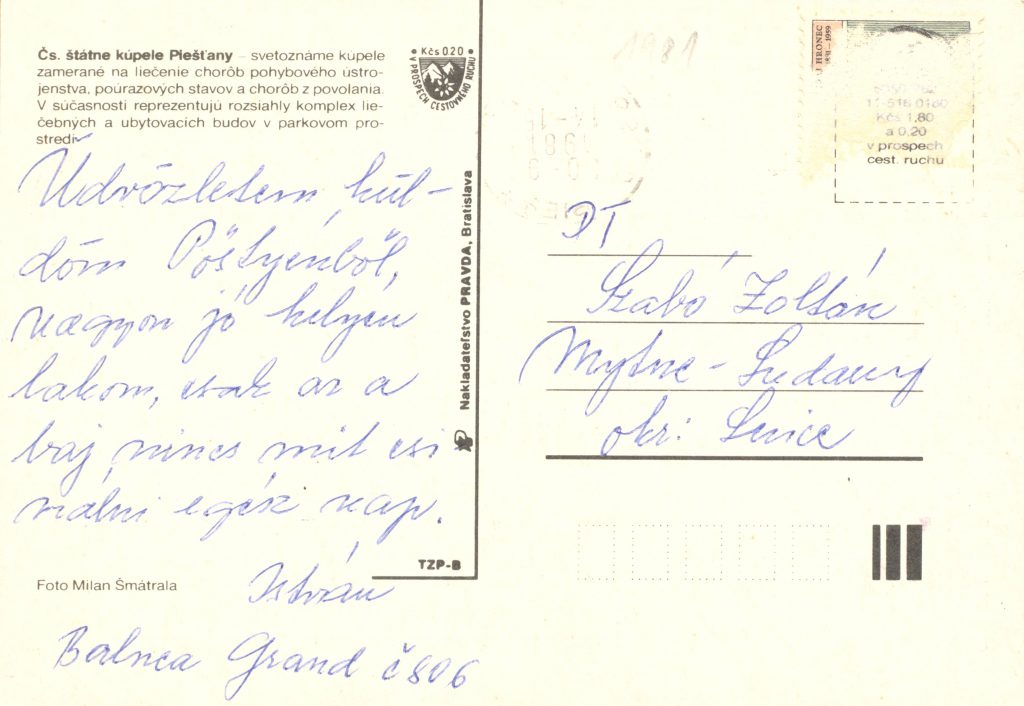 Čs. štátne kúpele Piešťany – svetoznáme kúpele
zamerané na liečenie chorôb pohybového ústro-
jenstva, poúrazových stavov a chorôb z povolania.
V súčasnosti reprezentujú rozsiahly komplex lie-
čebných a ubytovacích budov v parkovom pro-
stredí.
• Kčs 0.20 •
V PROSPECH CESTOVNÉHO RUCHU
Üdvözletem kül-
döm Pöstyénből,
nagyon jó helyen
lakom, csak az a
baj nincs mit csi
nálni egész nap.
István
Balnea Grand č 806
Foto Milan Šmátrala
TZP-B
Nakladateľstvo PRAVDA, Bratislava
1981
HRONEC
11-518 0180
Kčs 1,80
a 0,20
v prospech
cest. ruchu
DT
Szabó Zoltán
Mytne-Ludany
okr: